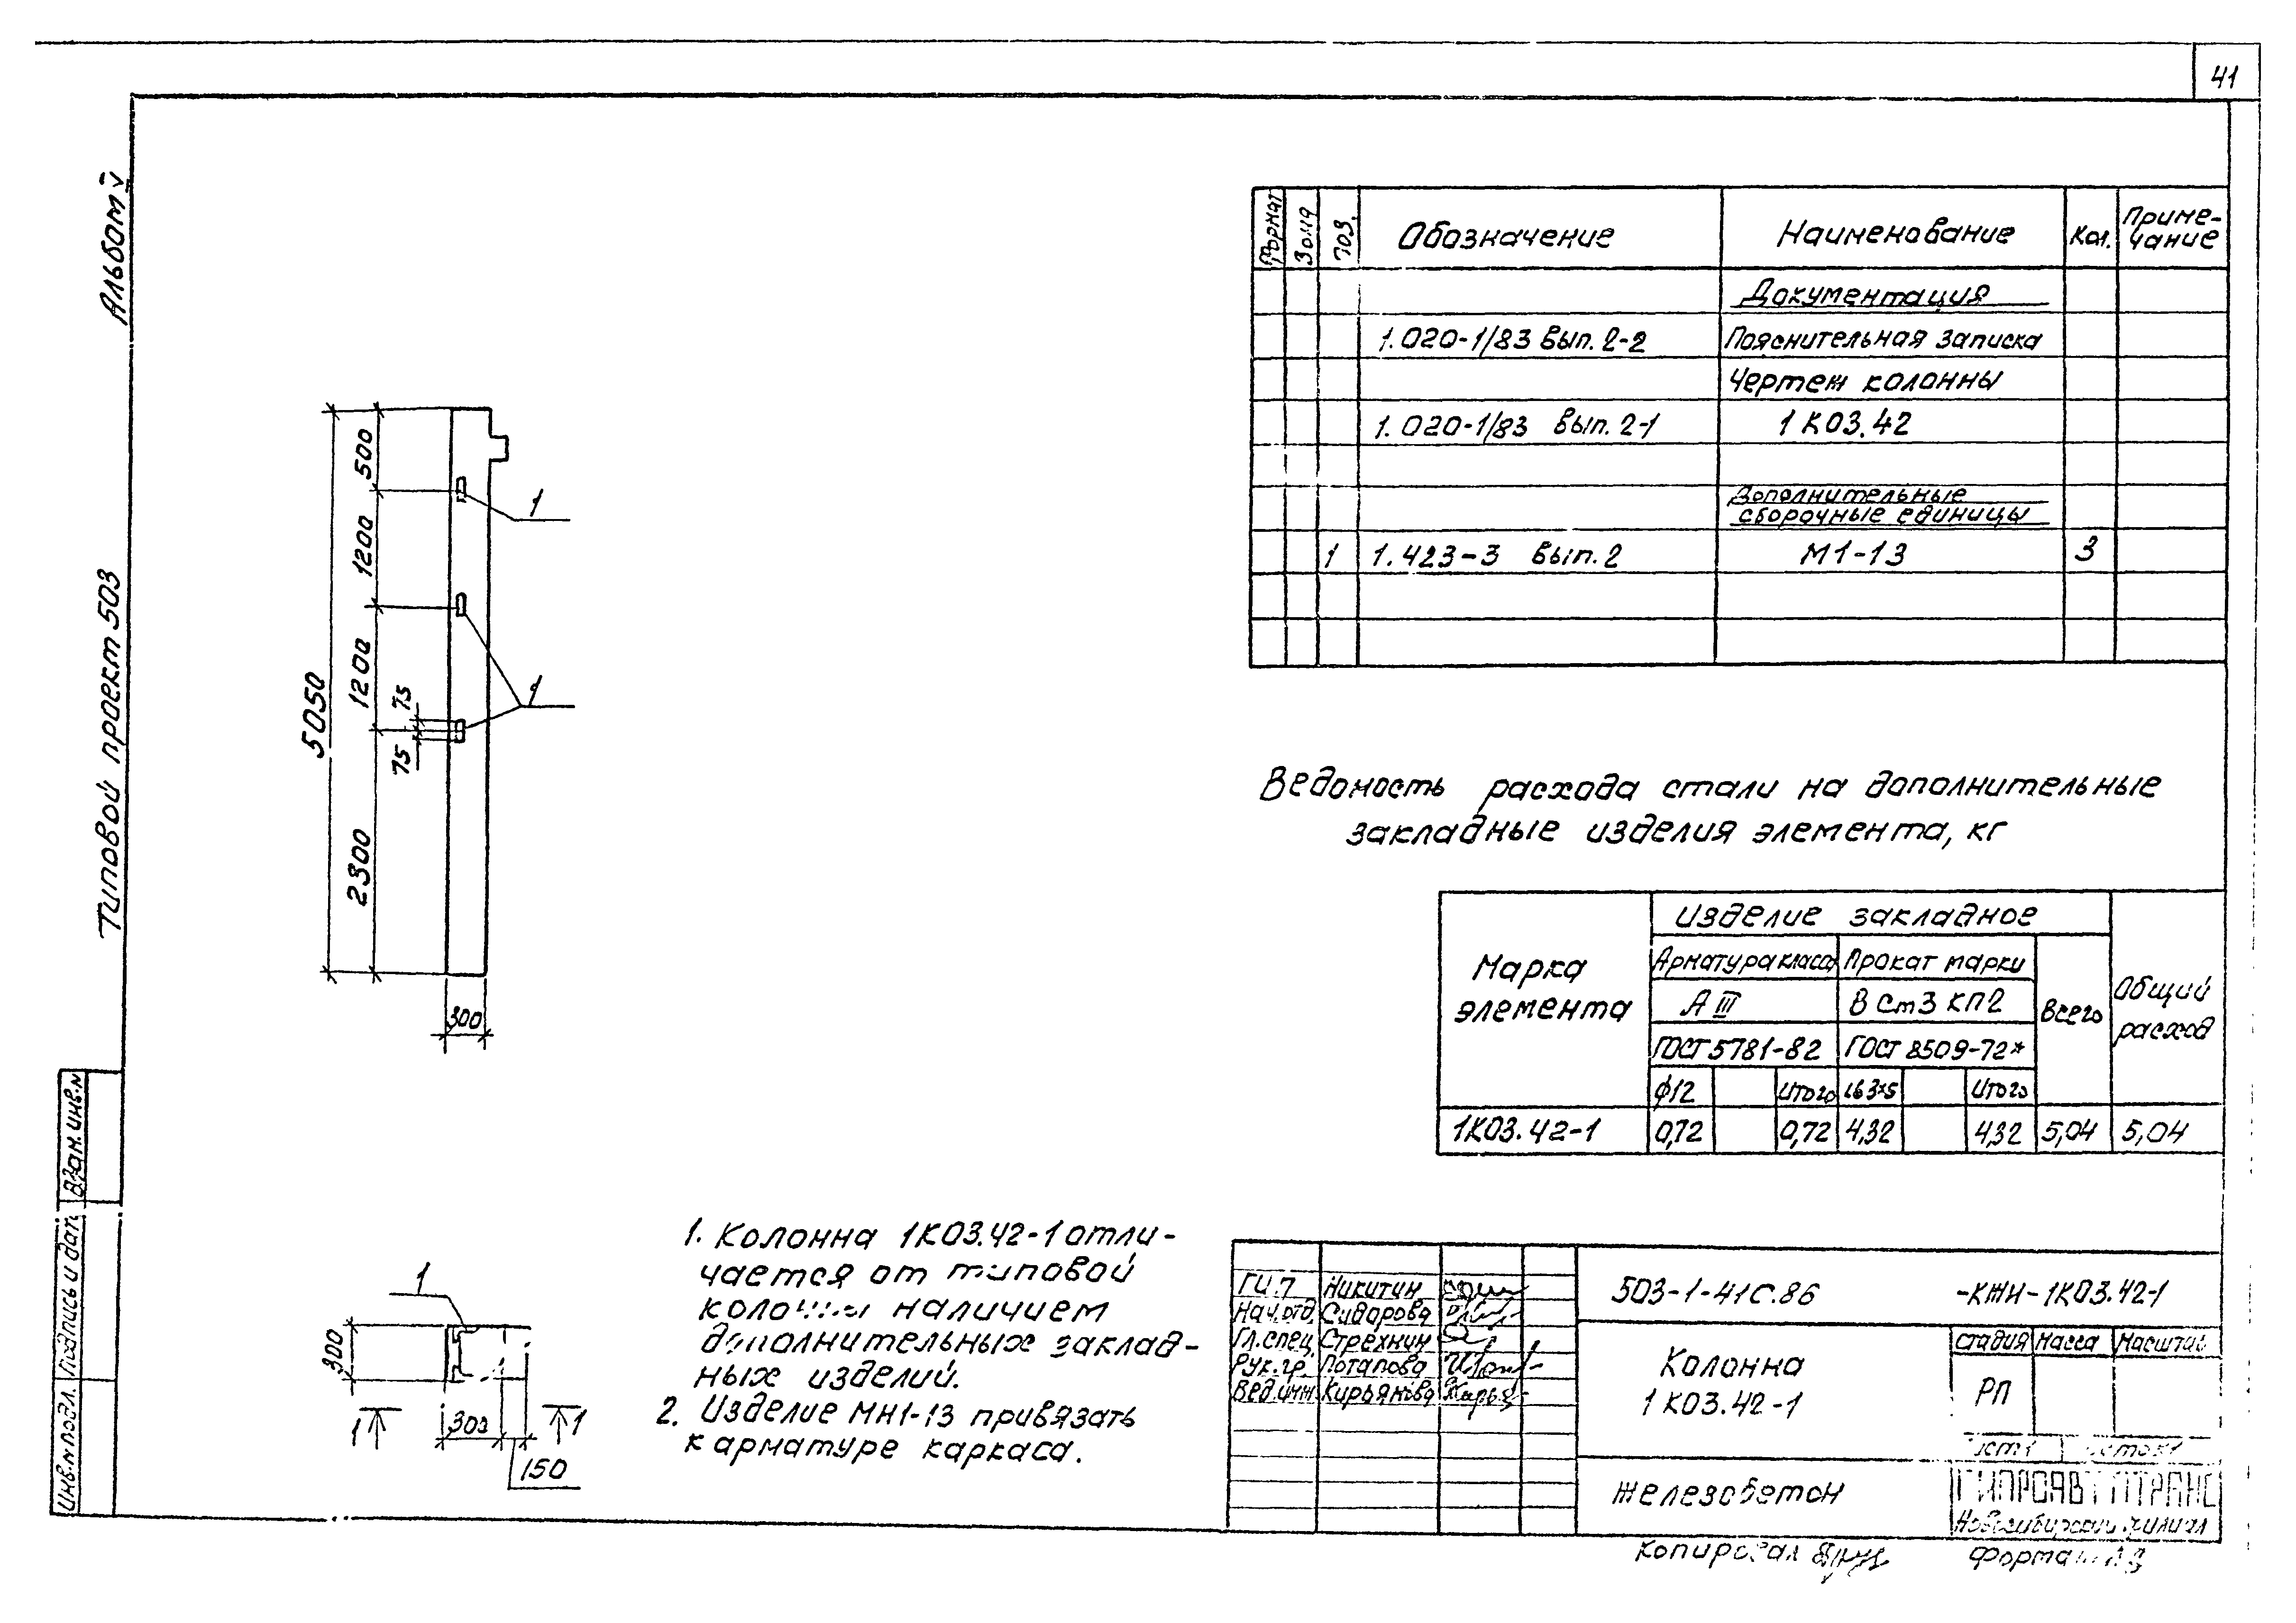 41
Альбом V
Типовой проект 503
Формат Зона Поз. Обозначение Наименование Кол. Приме-
чание
Документация
1.020-1/83 Вып. 2-2 Пояснительная записка
Чертеж колонны
1.020-1/83 Вып. 2-1 1К03.42
Дополнительные
сборочные единицы
1 1.423-3 Вып. 2 М1-13 3
5050
500
1200
1200
2300
75
75
1
1
300
Ведомость расхода стали на дополнительные
закладные изделия элемента, кг
Марка
элемента
Изделие закладное
Общий
расход
Арматура класса Прокат марки
А III В Ст3 КП2 Всего
ГОСТ 5781-82 ГОСТ 8509-72*
ф12 Итого L63х5 Итого
1К03.42-1 0,72 0,72 4,32 4,32 5,04 5,04
1
300
1 1
300
150
1. Колонна 1К03.42-1 отли-
чается от типовой
колонны наличием
дополнительных заклад-
ных изделий.
2. Изделие МН1-13 привязать
к арматуре каркаса.
Взам. инв. №
Подпись и дат
Инв. № подл.
ГИП Никитин
Нач.отд. Сидорова
Гл.спец. Стрехнин
Рук.гр. Потапова
Вед.инж. Кирьянова
503-1-41с.86 -КЖИ-1К03.42-1
Колонна
1К03.42-1
Стадия Масса Масштаб
РП
Лист 1 Листов 1
Железобетон
ГИПРОАВТОТРАНС
Новосибирский филиал
Копировал
Формат А3